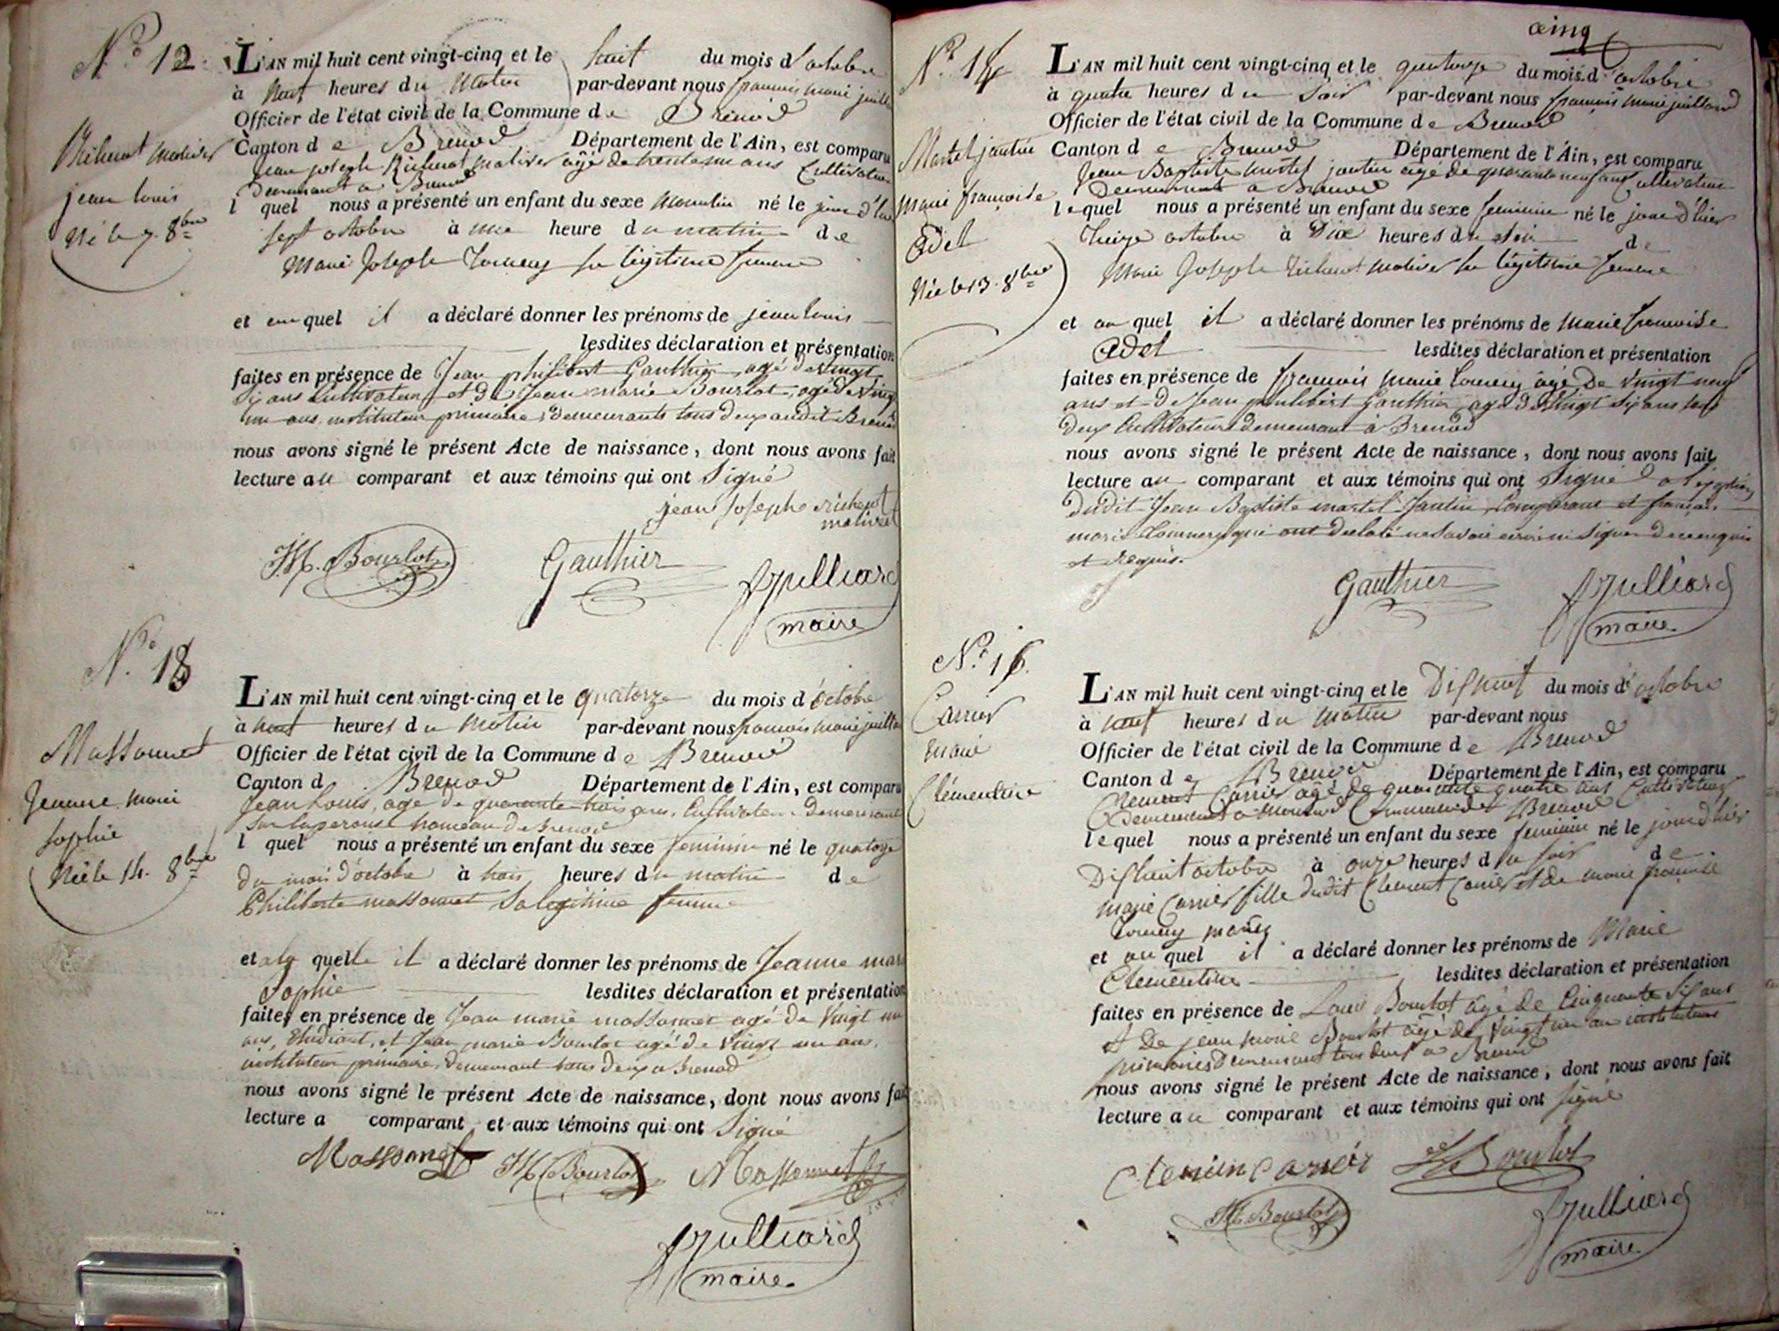 N.º 12.
Richerot Mativet
jean louis
Né le 7. 8bre
L'AN mil huit cent vingt-cinq et le huit du mois d'octobre
à neuf heures du Matin par-devant nous françois marie juill
Officier de l'état civil de la Commune de Brénod
Canton de Brenod Département de l'Ain, est comparu
Jean joseph âgé de ans Cultivateur
demeurant à Brenod
l quel nous a présenté un enfant du sexe Masculin né le jour d'hier
sept octobre à une heure du matin de
Marie Joseph sa légitime femme
et auquel il a déclaré donner les prénoms de jean louis
lesdites déclaration et présentation
faites en présence de Jean philibert Gauthier, agé de Vingt
six ans Cultivateur et de Jean marie Bourlot, agé de Vingt
un ans instituteur primaire, demeurants tous deux audit Brenod
nous avons signé le présent Acte de naissance, dont nous avons fait
lecture au comparant et aux témoins qui ont Signé
jean Josephe richerot
mativet
JM. Bourlot
Gauthier
fJulliard
maire
N.º 13
Massonnet
Jeanne marie
sophie
Née le 14. 8bre
L'AN mil huit cent vingt-cinq et le quatorze du mois d'octobre
à huit heures du Matin par-devant nous francois marie juillard
Officier de l'état civil de la Commune de Brenod
Canton d Brenod Département de l'Ain, est comparu
Jean Louis, age de quarante trois ans, Cultivateur Demeurant
sur hameau de Brenod
l quel nous a présenté un enfant du sexe feminin né le quatorze
du mois d'octobre à trois heures du matin de
Philiberte massonnet Sa legitime femme
et a la quelle il a déclaré donner les prénoms de Jeanne marie
Sophie lesdites déclaration et présentation
faites en présence de Jean marie massonnet agé de Vingt un
ans, Etudiant, et Jean marie Bourlot agé de Vingt un ans,
instituteur primaire, Demeurant tous deux a Brenod
nous avons signé le présent Acte de naissance, dont nous avons fait
lecture a comparant et aux témoins qui ont Signé
Massonnet
JM Bourlot
Massonnet
fJulliard
maire.
cinq
N.º 14
Martel jantin
Marie françoise
Adel
Née le 13. 8bre
L'AN mil huit cent vingt-cinq et le quatorze du mois d'octobre
à quatre heures du Soir par-devant nous françois Marie juillard
Officier de l'état civil de la Commune de Brenod
Canton de Brenod Département de l'Ain, est comparu
Jean Baptiste Martel jantin agé de quarante neuf ans cultivateur
demeurant à Brenod
lequel nous a présenté un enfant du sexe feminin né le jour d'hier
treize octobre à Dix heures du soir de
Marie Joseph Richerot Mativet sa légitime femme
et au quel il a déclaré donner les prénoms de Marie françoise
Adel lesdites déclaration et présentation
faites en présence de françois Marie âgé de Vingt neuf
ans et de Jean philibert Gauthier, agé de Vingt six ans tous
deux Cultivateurs demeurant à Brenod
nous avons signé le présent Acte de naissance, dont nous avons fait
lecture au comparant et aux témoins qui ont Signé a l'exception
dudit Jean Baptiste martel Jantin comparant et françois
marie qui ont declaré ne Savoir ecrire ni signer de ce enquis
et requis.
Gauthier
fJulliard
maire.
N.º 15.
Carrier
marie
Clémentine
L'AN mil huit cent vingt-cinq et le Dishuit du mois d'octobre
à neuf heures du Matin par-devant nous
Officier de l'état civil de la Commune de Brenod
Canton de Brenod Département de l'Ain, est comparu
Clement Carrier agé de quarante quatre ans Cultivateur
demeurant a Commune de Brenod
lequel nous a présenté un enfant du sexe feminin né le jour d'hier
Dishuit octobre à onze heures du soir de
marie Carrier fille dudit Clement Carrier et de marie françoise
et au quel il a déclaré donner les prénoms de Marie
Clementine lesdites déclaration et présentation
faites en présence de Louis Bourlot agé de Cinquante six ans
et De jean marie Bourlot agé de Vingt un an instituteur
primaire Demeurant tous deux a Brenod
nous avons signé le présent Acte de naissance, dont nous avons fait
lecture au comparant et aux témoins qui ont signé
Bourlot
JM Bourlot
fJulliard
maire